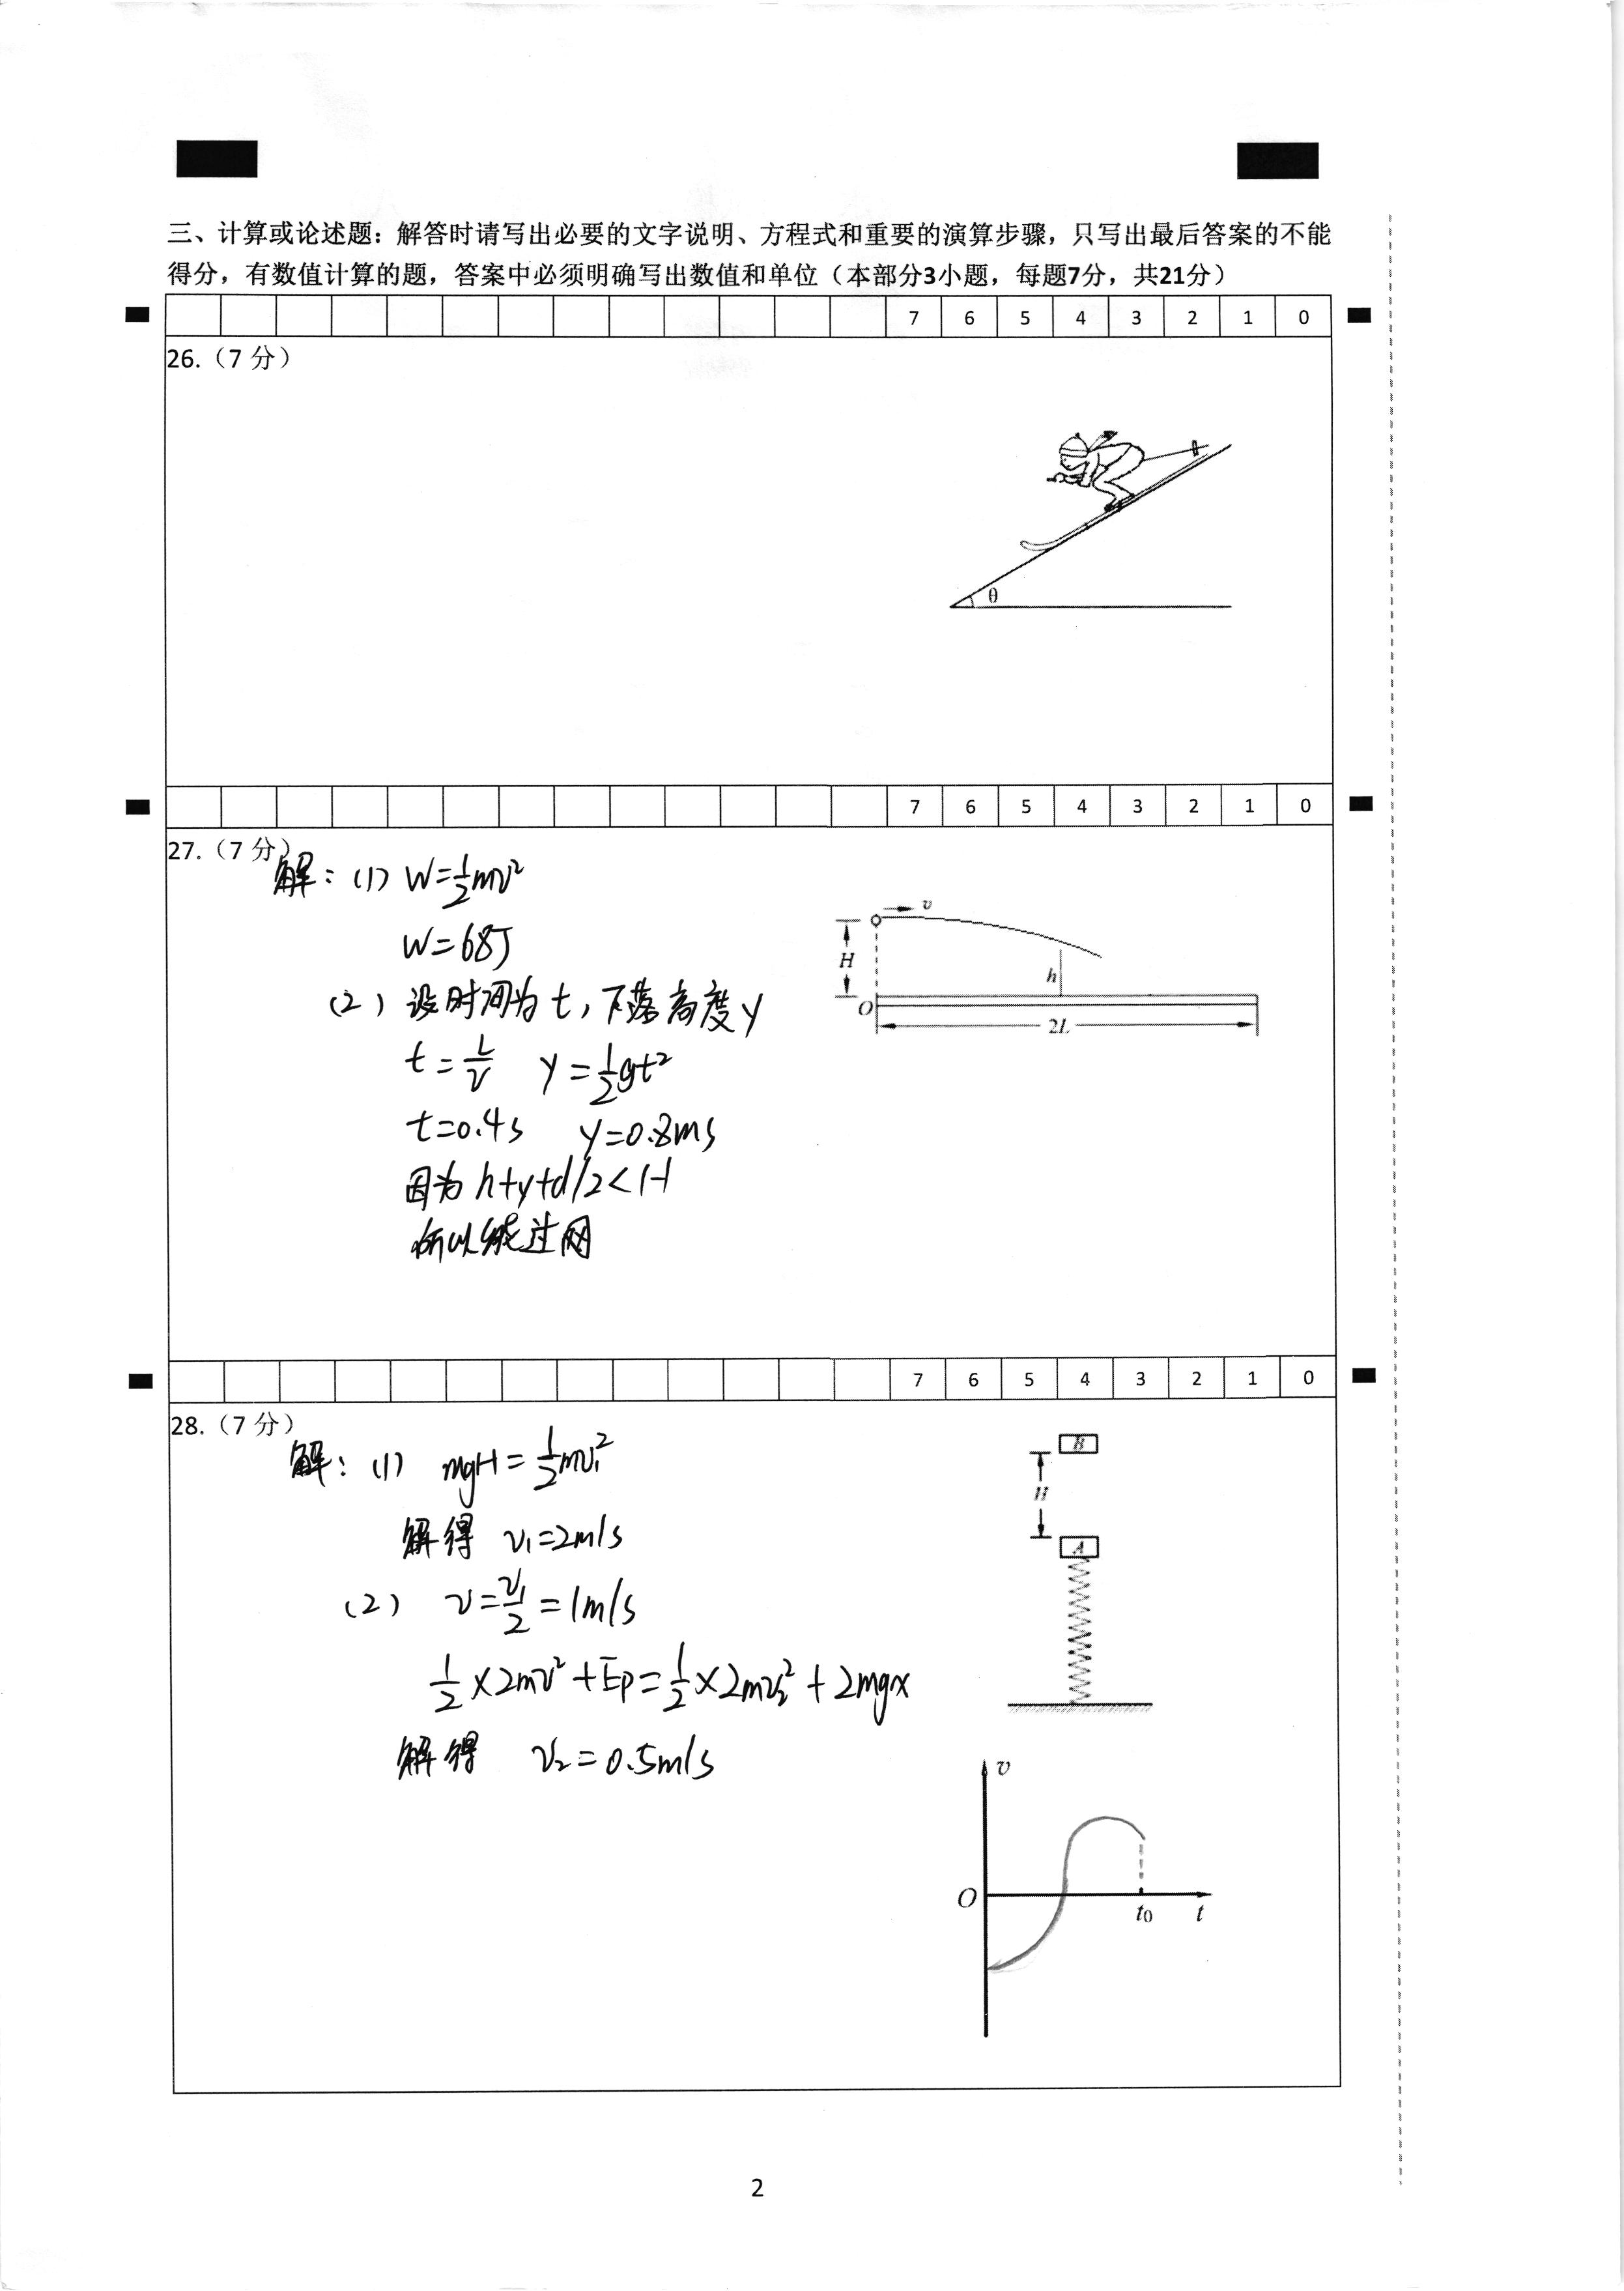 三、计算或论述题：解答时请写出必要的文字说明、方程式和重要的演算步骤，只写出最后答案的不能
得分，有数值计算的题，答案中必须明确写出数值和单位（本部分3小题，每题7分，共21分）
7 6 5 4 3 2 1 0
26.（7 分）
θ
7 6 5 4 3 2 1 0
27.（7 分）
解：(1) W=½mv²
W=68J
(2) 设时间为t，下落高度y
t=L/v y=½gt²
t=0.4s y=0.8ms
因为 h+y+d/2<H
所以能过网
v
H
h
O
2L
7 6 5 4 3 2 1 0
28.（7 分）
解：(1) mgH=½mv₁²
解得 v₁=2m/s
(2) v=v₁/2=1m/s
½×2mv²+Ep=½×2mv₂²+2mgx
解得 v₂=0.5m/s
B
H
A
v
O t₀ t
2